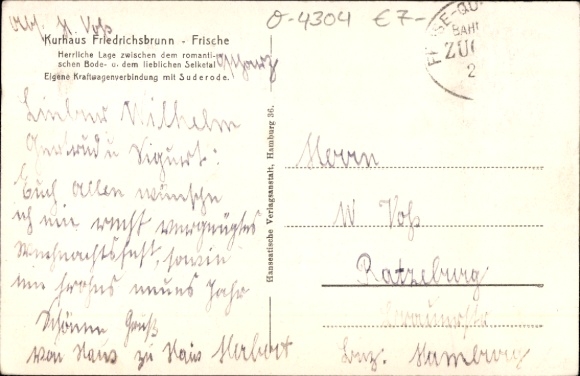 Abs. H. Voß
O-4304 € 7-
Kurhaus Friedrichsbrunn - Frische
Herrliche Lage zwischen dem romanti-
schen Bode- u. dem lieblichen Selketal
Eigene Kraftwagenverbindung mit Suderode.
BAHN
ZUG
2
Lieber Wilhelm
Gertrud u Sigurt:
Euch Allen wünsche
ich ein recht vergnügtes
Weihnachtsfest, sowie
ein frohes neues Jahr
Schöne Grüß
von Haus zu Haus Herbert
Hanseatische Verlagsanstalt, Hamburg 36.
Herrn
W Voß
Ratzeburg
Hamburg